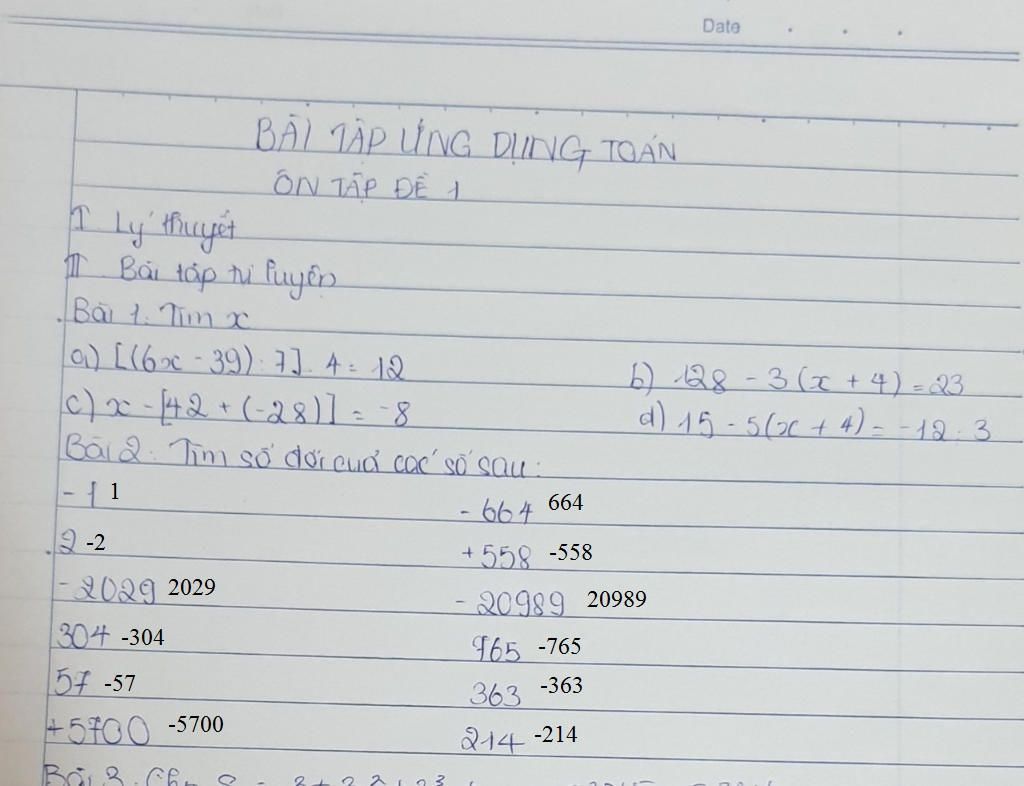 Date . . .
BÀI TẬP ỨNG DỤNG TOÁN
ÔN TẬP ĐỀ 1
I Lý thuyết
II Bài tập tự luyện
Bài 1. Tìm x
a) [(6x - 39) : 7] . 4 = 12 b) 128 - 3(x + 4) = 23
c) x - [42 + (-28)] = -8 d) 15 - 5(x + 4) = -12 : 3
Bài 2. Tìm số đối của các số sau:
-1 1 -664 664
2 -2 +558 -558
-2029 2029 -20989 20989
304 -304 765 -765
57 -57 363 -363
+5700 -5700 214 -214
Bài 3.